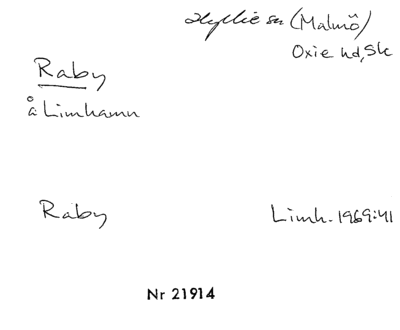 Hyllie sn (Malmö)
Oxie hd, Sk
Raby
å Limhamn
Raby
Limh. 1969:41
Nr 21914